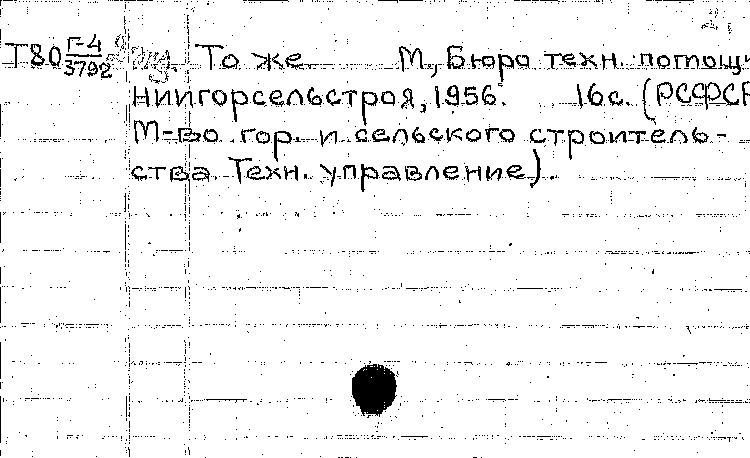 2.
Т80 Г-4/3792 То же. М., Бюро техн. помощи
НИИгорсельстроя, 1956. 16с. (РСФСР
М-во гор. и сельского строитель-
ства. Техн. управление).